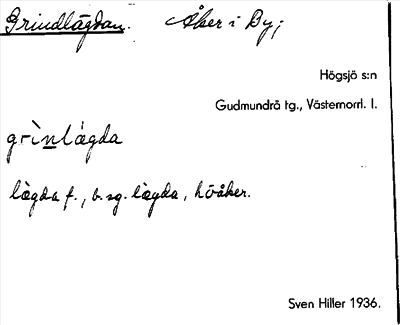 Grindlägdan. Åker i By;
Högsjö s:n
Gudmundrå tg., Västernorrl. l.
grìnlägda
lägda f., b. sg. lägda, höåker.
Sven Hiller 1936.